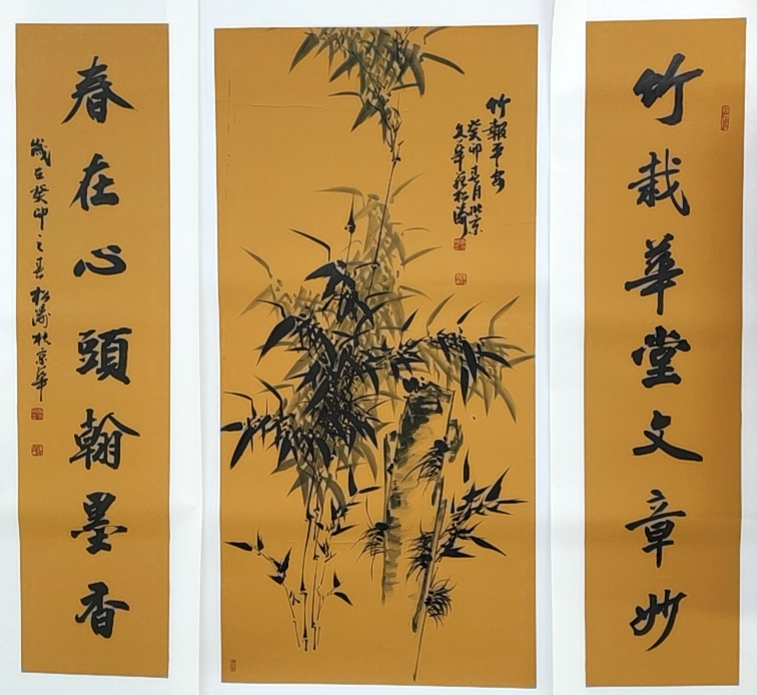 竹栽華堂文章妙
竹報平安
癸卯春月北京
文華苑松濤
春在心頭翰墨香
歲在癸卯之春松濤於京華